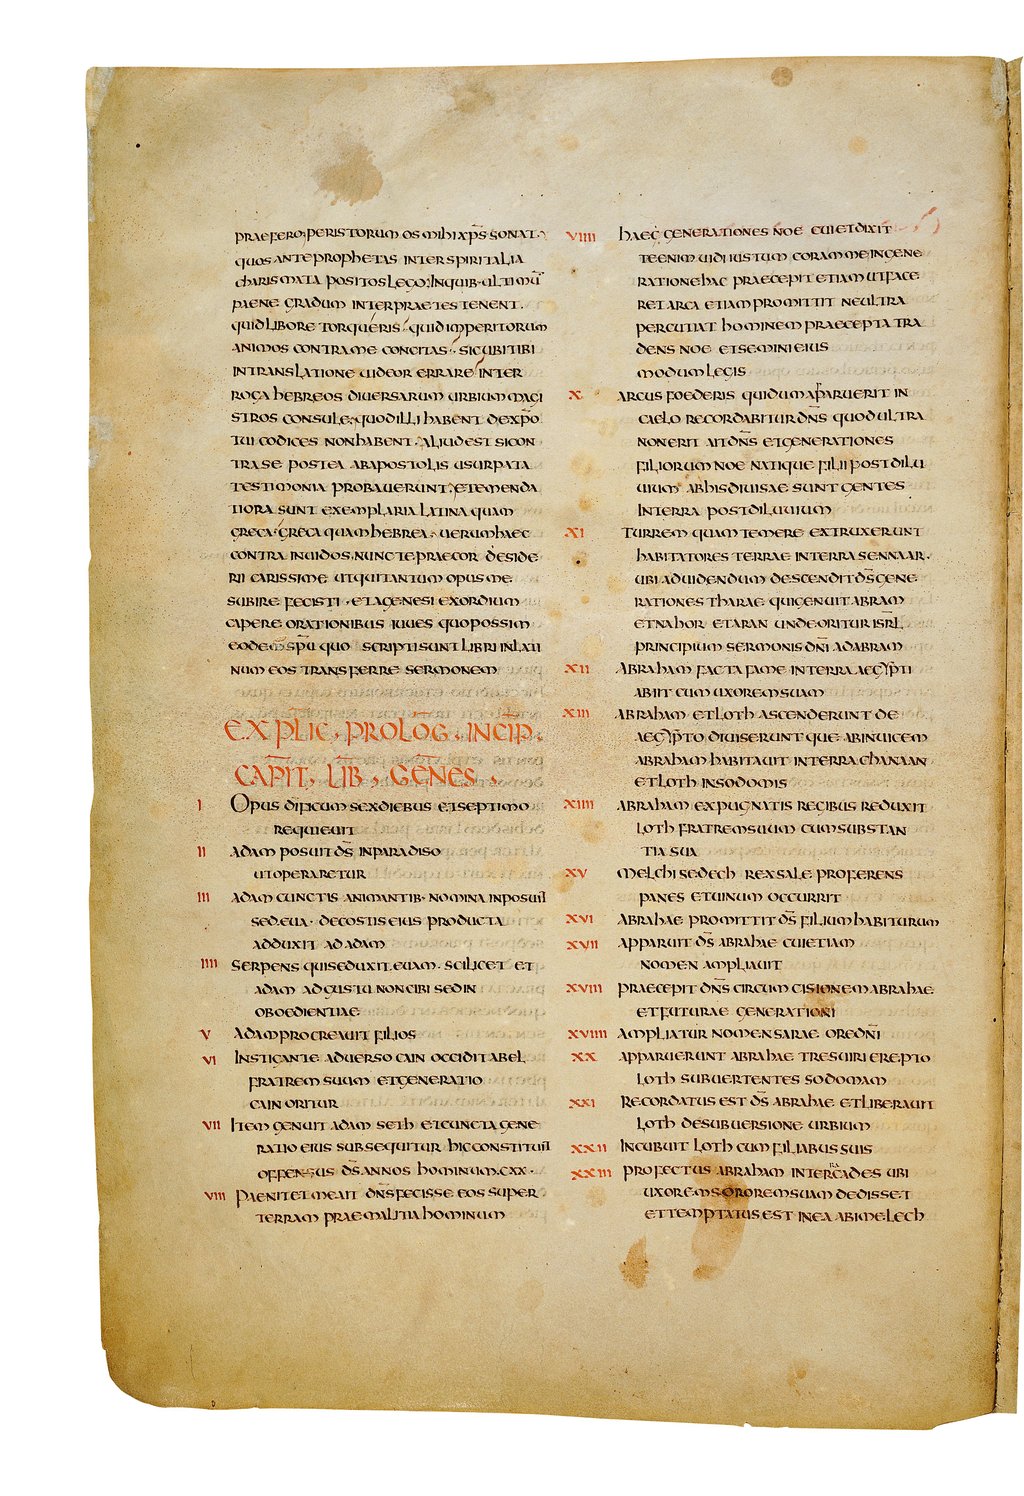 PRAEFERO; PER ISTORUM OS MIHI XPS SONAT
QUOS ANTE PROPHETAS INTER SPIRITALIA
CHARISMATA POSITOS LEGO; INQUIB· ULTIMŪ
PAENE GRADUM INTERPRAETES TENENT·
QUID LIBORE TORQUERIS QUID IMPERITORUM
ANIMOS CONTRA ME CONCITAS· SICUBI TIBI
IN TRANSLATIONE UIDEOR ERRARE INTER
ROGA HEBREOS DIUERSARUM URBIUM MAGI
STROS CONSULE· QUOD ILLI HABENT DE XPO
TUI CODICES NON HABENT· ALIUD EST SI CON
TRA SE POSTEA AB APOSTOLIS USURPATA
TESTIMONIA PROBAUERUNT· ET EMENDA
TIORA SUNT EXEMPLARIA LATINA QUAM
GRECA· GRECA QUAM HEBREA· UERUM HAEC
CONTRA INUIDOS· NUNC TE PRAECOR DESIDE
RII CARISSIME UT QUI TANTUM OPUS ME
SUBIRE FECISTI· ET A GENESI EXORDIUM
CAPERE ORATIONIBUS IUUES QUO POSSIM
EODEM SPU QUO SCRIPTI SUNT LIBRI IN LATI
NUM EOS TRANSFERRE SERMONEM
EXPLIC, PROLOG, INCIP,
CAPIT, LIB, GENES,
I OPUS DIFICUM SEX DIEBUS ET SEPTIMO
REQUIEUIT
II ADAM POSUIT DS IN PARADISO
UT OPERARETUR
III ADAM CUNCTIS ANIMANTIB· NOMINA INPOSUIT
SED· EUA· DE COSTIS EIUS PRODUCTA
ADDUXIT AD ADAM
IIII SERPENS QUI SEDUXIT EUAM· SCILICET ET
ADAM AD GUSTU NON CIBI SED IN
OBOEDIENTIAE
V ADAM PROCREAUIT FILIOS
VI INSTIGANTE ADUERSO CAIN OCCIDIT ABEL
FRATREM SUUM ET GENERATIO
CAIN ORITUR
VII ITEM GENUIT ADAM SETH ET CUNCTA GENE
RATIO EIUS SUBSEQUITUR HIC CONSTITUIT
OFFENSUS DS ANNOS HOMINUM· CXX·
VIII PAENITET ME AIT DNS FECISSE EOS SUPER
TERRAM PRAE MALITIA HOMINUM
VIIII HAEC GENERATIONES NOE CUI ET DIXIT
TE ENIM UIDI IUSTUM CORAM ME IN GENE
RATIONE HAC PRAECEPIT ETIAM UT FACE
RET ARCA ETIAM PROMITTIT NE ULTRA
PERCUTIAT HOMINEM PRAECEPTA TRA
DENS NOE ET SEMINI EIUS
MODUM LEGIS
X ARCUS FOEDERIS QUI DUM APPARUERIT IN
CAELO RECORDABITUR DNS QUOD ULTRA
NON ERIT AIT DNS ET GENERATIONES
FILIORUM NOE NATIQUE FILII POST DILU
UIUM AB HIS DIUISAE SUNT GENTES
IN TERRA POST DILUUIUM
XI TURREM QUAM TEMERE EXTRUXERUNT
HABITATORES TERRAE IN TERRA SENNAAR·
UBI AD UIDENDUM DESCENDIT DS GENE
RATIONES THARAE QUI GENUIT ABRAM
ET NAHOR ET ARAN UNDE ORITUR ISRL
PRINCIPIUM SERMONIS DNI AD ABRAM
XII ABRAHAM FACTA FAME IN TERRA AEGYPTI
ABIIT CUM UXOREM SUAM
XIII ABRAHAM ET LOTH ASCENDERUNT DE
AEGYPTO DIUISERUNTQUE AB INUICEM
ABRAHAM HABITAUIT IN TERRA CHANAAN
ET LOTH IN SODOMIS
XIIII ABRAHAM EXPUGNATIS REGIBUS REDUXIT
LOTH FRATREM SUUM CUM SUBSTAN
TIA SUA
XV MELCHISEDECH REX SALE PROFERENS
PANES ET UINUM OCCURRIT
XVI ABRAHAE PROMITTIT DS FILIUM HABITURUM
XVII APPARUIT DS ABRAHAE CUI ETIAM
NOMEN AMPLIAUIT
XVIII PRAECEPIT DNS CIRCUMCISIONEM ABRAHAE
ET FUTURAE GENERATIONI
XVIIII AMPLIATUR NOMEN SARAE ORE DNI
XX APPARUERUNT ABRAHAE TRES UIRI EREPTO
LOTH SUBUERTENTES SODOMAM
XXI RECORDATUS EST DS ABRAHAE ET LIBERAUIT
LOTH DE SUBUERSIONE URBIUM
XXII INCUBUIT LOTH CUM FILIABUS SUIS
XXIII PROFECTUS ABRAHAM INTER CADES UBI
UXOREM SOROREM SUAM DEDISSET
ET TEMPTATUS EST IN EA ABIMELECH